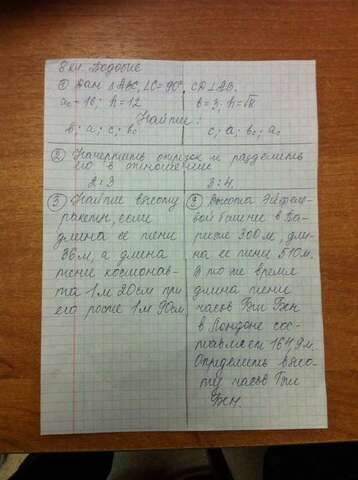 8 кл. Подобие
① Дан △ABC, ∠C = 90°, CD⊥AB.
a₀ = 16; h = 12
b = 3; h = √8
Найти:
b; a; c; b₀
c; a; b₀; a₀
② Начертить отрезок и разделить
его в отношении
2 : 3
3 : 4.
③ Найти высоту
ракеты, если
длина её тени
36м, а длина
тени космонав-
та 1м 20см при
его росте 1м 90см.
③ Высота Эйфеле-
вой башни в Па-
риже 300м, дли-
на её тени 510м.
В то же время
длина тени
часов Биг Бэн
в Лондоне сос-
тавляет 164,9м.
Определить высо-
ту часов Биг
Бэн.